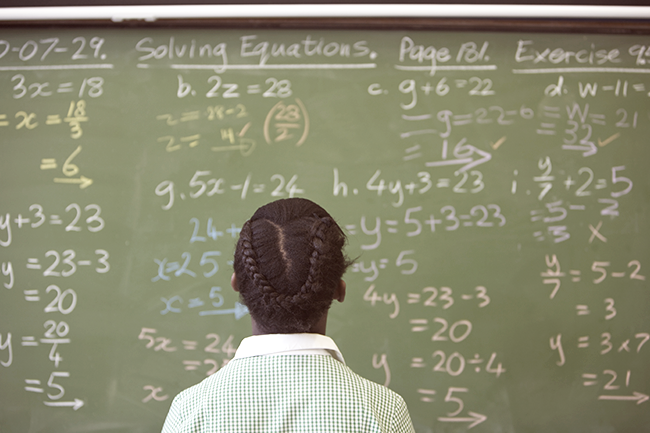 0-07-29. Solving Equations. Page 181. Exercise
3x = 18
= x = 18/3
= 6
y+3 = 23
y = 23-3
= 20
y = 20/4
= 5
b. 2z = 28
z = 28-2 (28/2)
z = 14
g. 5x-1 = 24
24+
x = 25
x = 5
5x = 24
= 25
x
c. g+6 = 22
= g = 22-6
= 16
h. 4y+3=23
y = 5+3=23
y = 5
4y = 23-3
= 20
y = 20÷4
= 5
d. w-11 =
= w = 21
32
i. y/7 + 2 = 5
= 5 2
= 3
y/7 = 5-2
= 3
y = 3x7
= 21